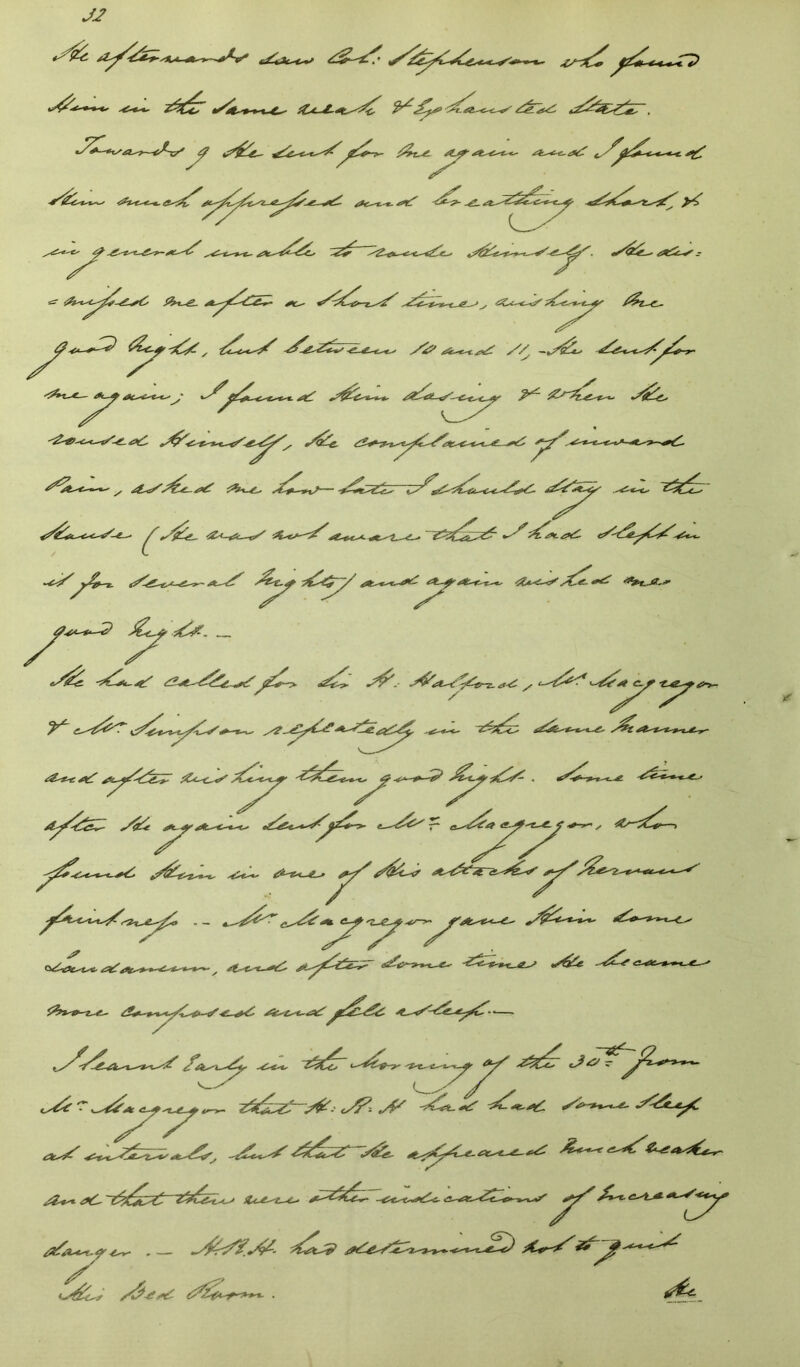 32
He afterwards saw Col: Stephenson who found
Him in the same weak & Exhausted State.
Towards 9 He sent for me again and I found
Him much oppressed and breathing short, &
in general unable to rouse Himself. He dis:
= missed me after a short time, wishing me
good Night, but between 10 and 11, - He sent for
me again; I found Him dosing & when He
roused Himself, He complained of inward
Pain, asked me how late I should stay in the
House (He was not aware that I had slept in
it for several Nights) and again wished me
good Night. —
He had called for Sir H. Halford, Mr. Macgregor
& Mr. Simpson repeatedly in the same manner
and after wishing them good Night. Some time
after He again sent for Mr. Macgregor, who
found Him in one of His attacks of Nervous
faintness -- Mr. Macgregor gave Him some
Laudanum, and after some time He became
more composed and fell asleep —
I learnt Early in the Morning of the 30th from
Mr. Macgregor that H: R: H had had some Sleep
at intervals, but that He appeared much weaker
and that there were other indications of Increasing
danger. — H.R.H. had determined not to quit
His Bed Room.
He